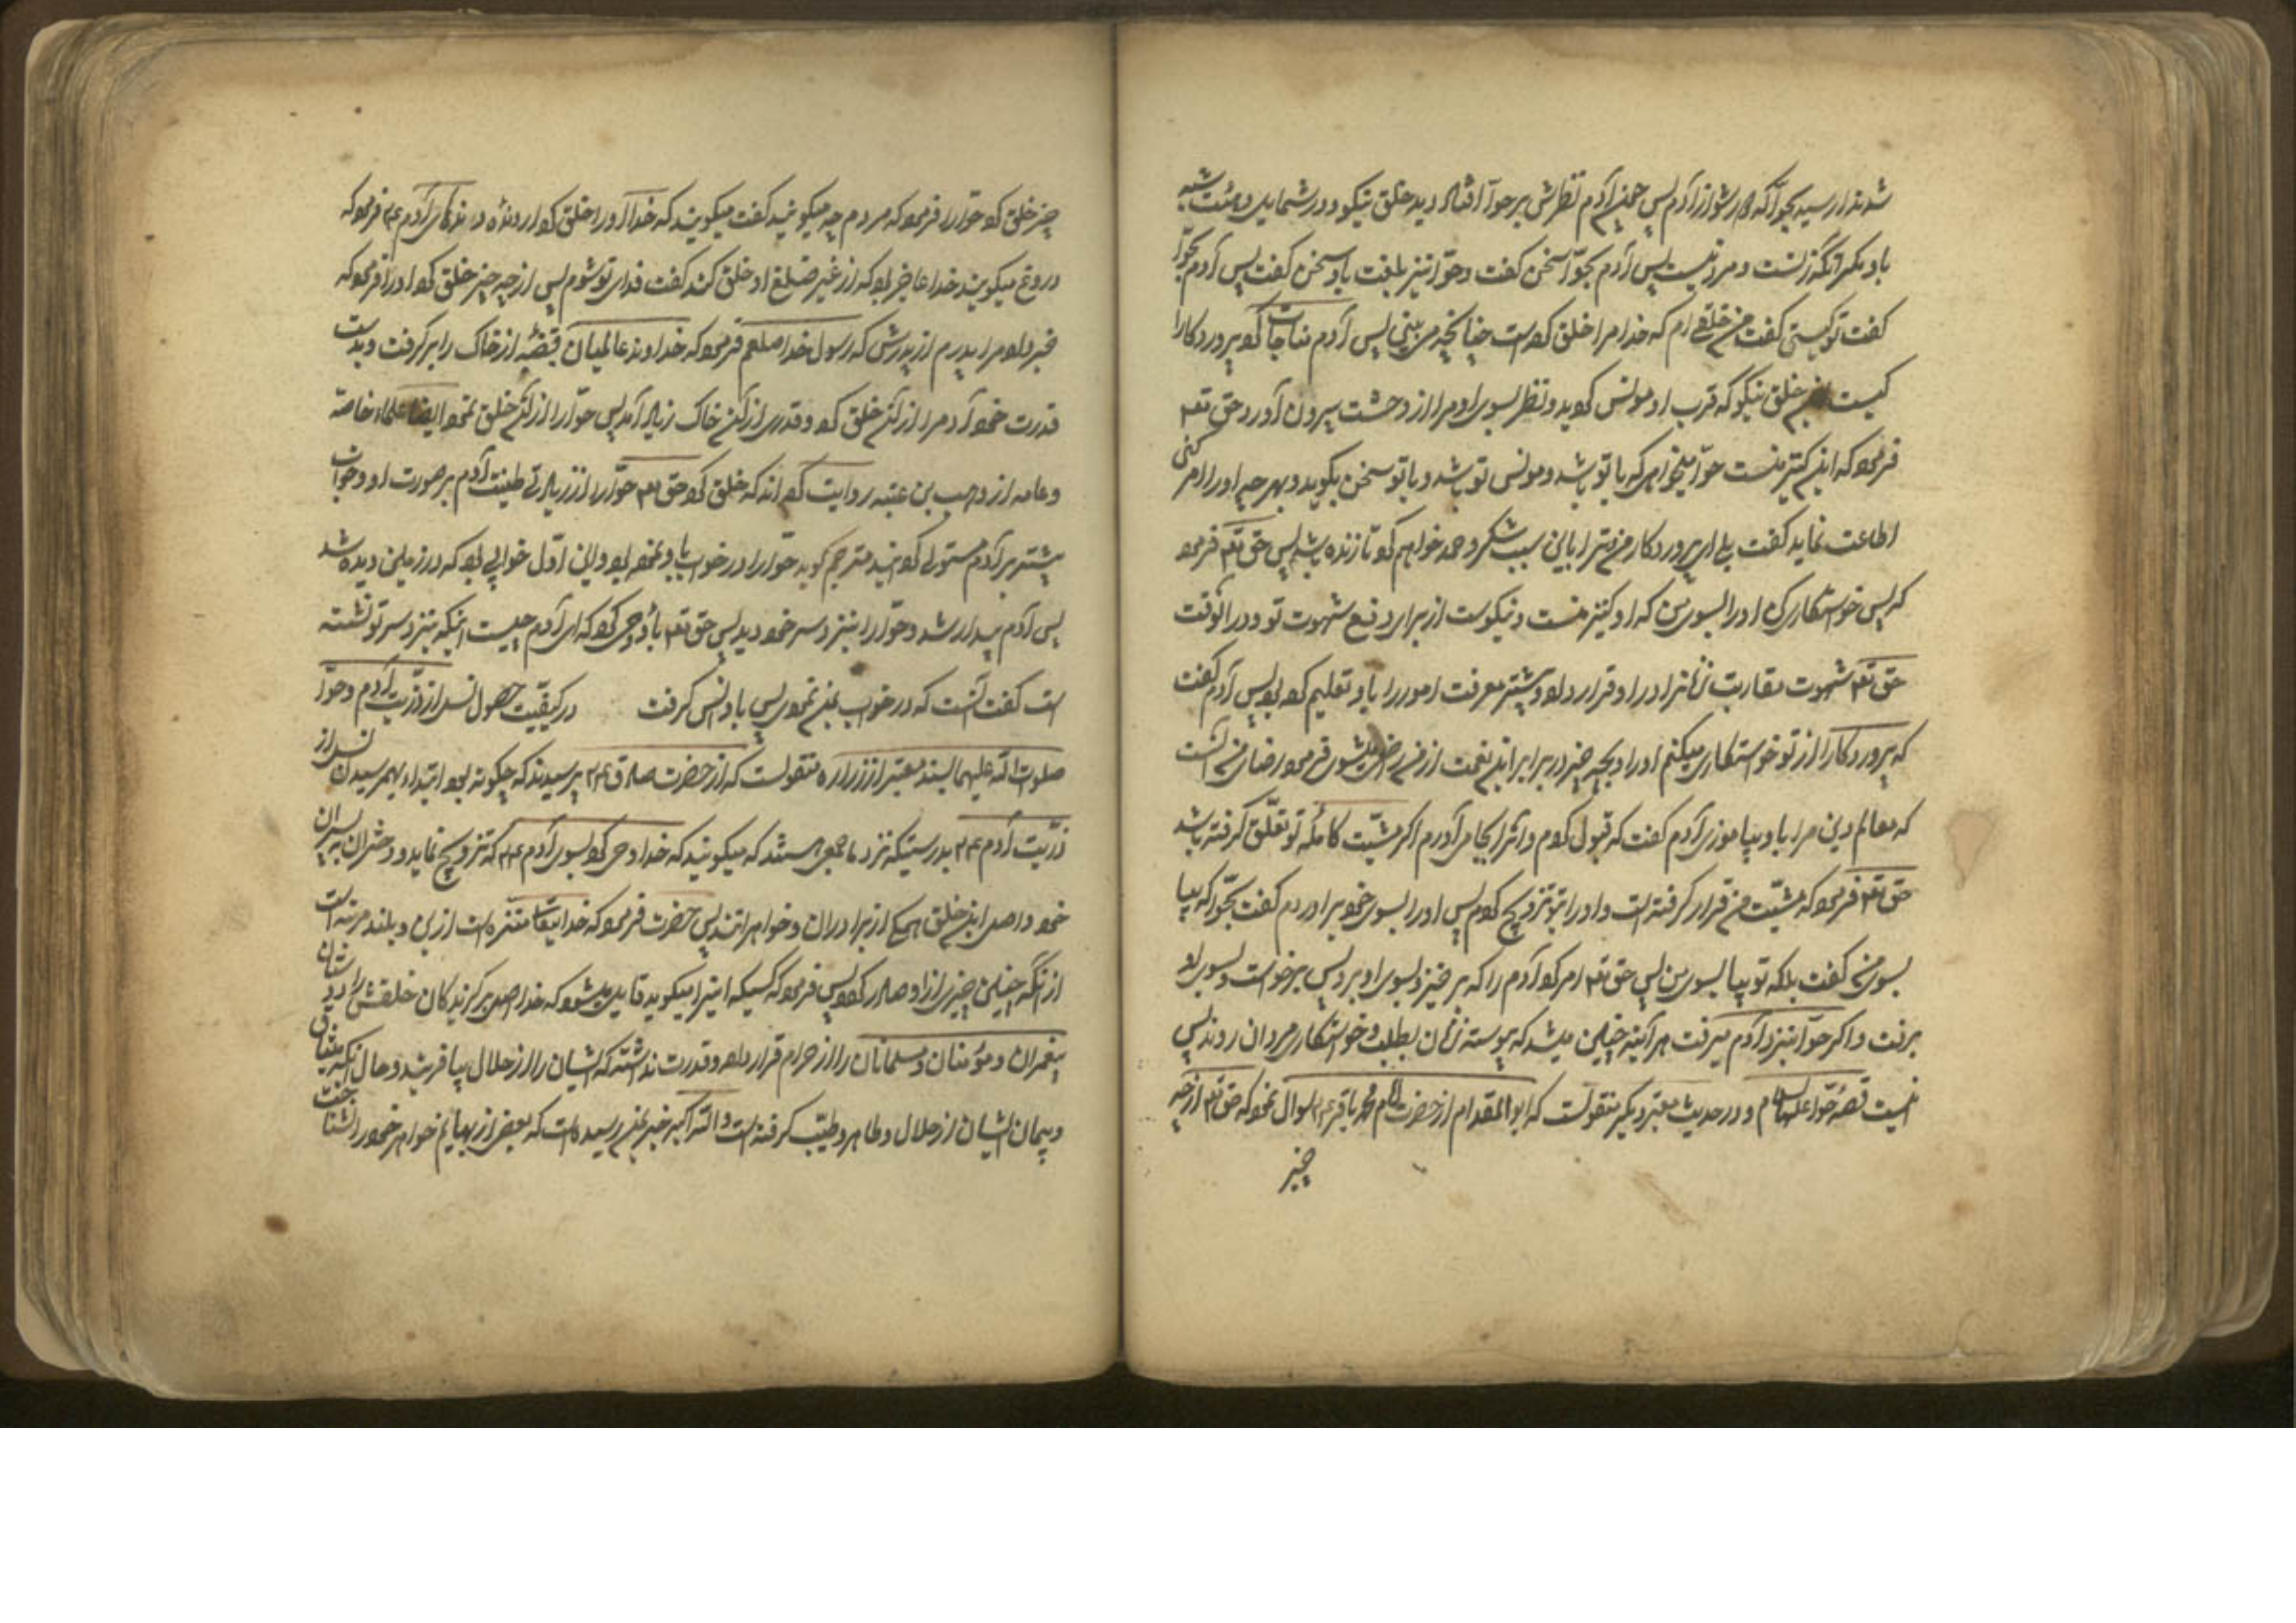 شد ندا رسید بحوّا که دور شو از آدم پس چون آدم نظرش بر حوّا افتاد دید خلق نیکو و در شمایل و هیئت شبیه
باو مگر آنکه زنست و مرد نیست پس آدم بحوّا سخن گفت و حوّا نیز بلغت باو سخن گفت پس آدم بحوّا
گفت تو کیستی گفت من خلقی ام که خدا مرا خلق کرده است چنانچه می بینی پس آدم مناجات کرد پروردکارا
کیست این خلق نیکو که قرب او مونس کردید و نظر بسوی او مرا از وحشت بیرون آورد حق تعه
فرمود که این کنیز منست حوّا میخواهی که با تو باشد و مونس تو باشد و با تو سخن بگوید و بهر چه او را امر کنی
اطاعت نماید کفت بلی ای پروردکار من ترا باین سبب شکر و حمد خواهم کرد تا زنده باشم پس حق تعه فرمود
که پس خواستکاری کن او را بسوی من که او کنیز منست و نیکوست از برای دفع شهوت تو و در آنوقت
حق تعه شهوت مقاربت زنانرا در او قرار داد و پیشتر معرفت امور را باو تعلیم کرده بود پس آدم گفت
که پروردکارا از تو خواستکاری میکنم او را و بچه چیز در برابر این نعمت از من راضی میشوی فرمود رضای من آنست
که معالم دین مرا باو بیاموزی آدم کفت که قبول کردم و آنرا بجا می آورم اکر مشیّت کامله تو تعلّق کرفته باشد
حق تعه فرمود که مشیّت من قرار کرفته است و او را بتو تزویج کردم پس او را بسوی خود بر آدم کفت بحّوا که بیا
بسوی من کفت بلکه تو بیا بسوی من پس حق تعه امر کرد آدم را که برخیز و بسوی او برو پس برخواست و بسوی او
برفت و اکر حوّا بنزد آدم میرفت هر آئینه چنین میشد که پیوسته زنان بطلب و خواستکاری مردان روند پس
اینست قصّه حوّا علیها السلام و در حدیث معتبر دیکر منقولست که ابو المقدام از حضرت امام محمد باقر ع م سوال نمود که حق تعه از چه
چیز
چیز خلق کرد حوّا را فرمود که مردم چه میکویند کفت میکویند که خدا او را خلق کرد از دنده از دنده‌های آدم ع م فرمود که
دروغ میکویند خدا عاجز بود که از غیر ضلع او خلق کند کفت فدای تو شوم پس از چه چیز خلق کرد او را فرمود که
خبر داد مرا پدرم از پدرش که رسول خدا صلعم فرمود که خداوند عالمیان قبضهٔ از خاک را برکرفت و بدست
قدرت خود آدم را از آن خلق کرد و قدری از آن خاک زیاد آمد پس حوّا را از آن خلق نمود ایضا علماء خاصه
و عامه از وهب بن عتبه روایت کرده اند که خلق کرد حق تعه حوّا را از زیادتی طینت آدم بر صورت او و خواب
پیشتر بر آدم مستولی کردانید مترجم کوید حوّا را در خواب باو نموده بود و این اوّل خوابی بود که در زمین دیده شد
پس آدم بیدار شد و حوّا را بنزد سر خود دید پس حق تعه باو وحی کرد که ای آدم چیست اینکه بنزد سر تو نشسته
است کفت آنست که در خواب بمن نمودی پس باو انس کرفت در کیفیّت حصول نسل از ذرّیت آدم و حوّا
صلوت الله علیهما بسند معتبر از زراره منقولست که از حضرت صادق ع م پرسیدند که چکونه بود ابتداء بهم رسیدن نسل از
ذرّیت آدم ع م بدرستیکه نزد ما جمعی هستند که میکویند که خدا وحی کرد بسوی آدم ع م که تزویج نماید دختران به پسران
خود و اصل این خلق همکی از برادران و خواهرانند پس حضرت فرمود که خدایتعا منزه است از این و بلند مرتبه است
از آنکه چنین چیزی از او صادر کردد پس فرمود که کسیکه اینرا میکوید قایل میشود که خدا اصل برکزیدکان خلقش را و دوستان
پیغمبران و مؤمنان و مسلمانان را از حرام قرار داده و قدرت نداشته که ایشان را از حلال بیافریند و حال آنکه میثاق
و پیمان ایشان از حلال و طاهر و طیّب کرفته است والله اکبر خبر بمن رسیده است که بعضی از بهایم خواهر خود را نشناخت